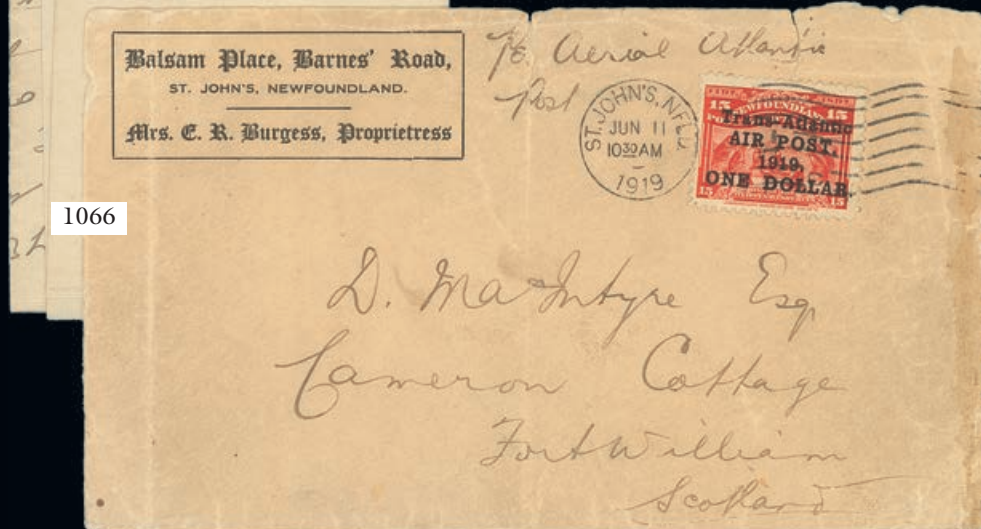 Balsam Place, Barnes' Road,
ST. JOHN'S, NEWFOUNDLAND.
Mrs. E. R. Burgess, Proprietress
Aerial Atlantic
Post
ST. JOHN'S, NFLD
JUN 11
10 30 AM
1919
15 15
NEWFOUNDLAND
Trans-Atlantic
AIR POST,
1919,
ONE DOLLAR.
15 15
1066
D. MacIntyre Esq
Cameron Cottage
Fort William
Scotland